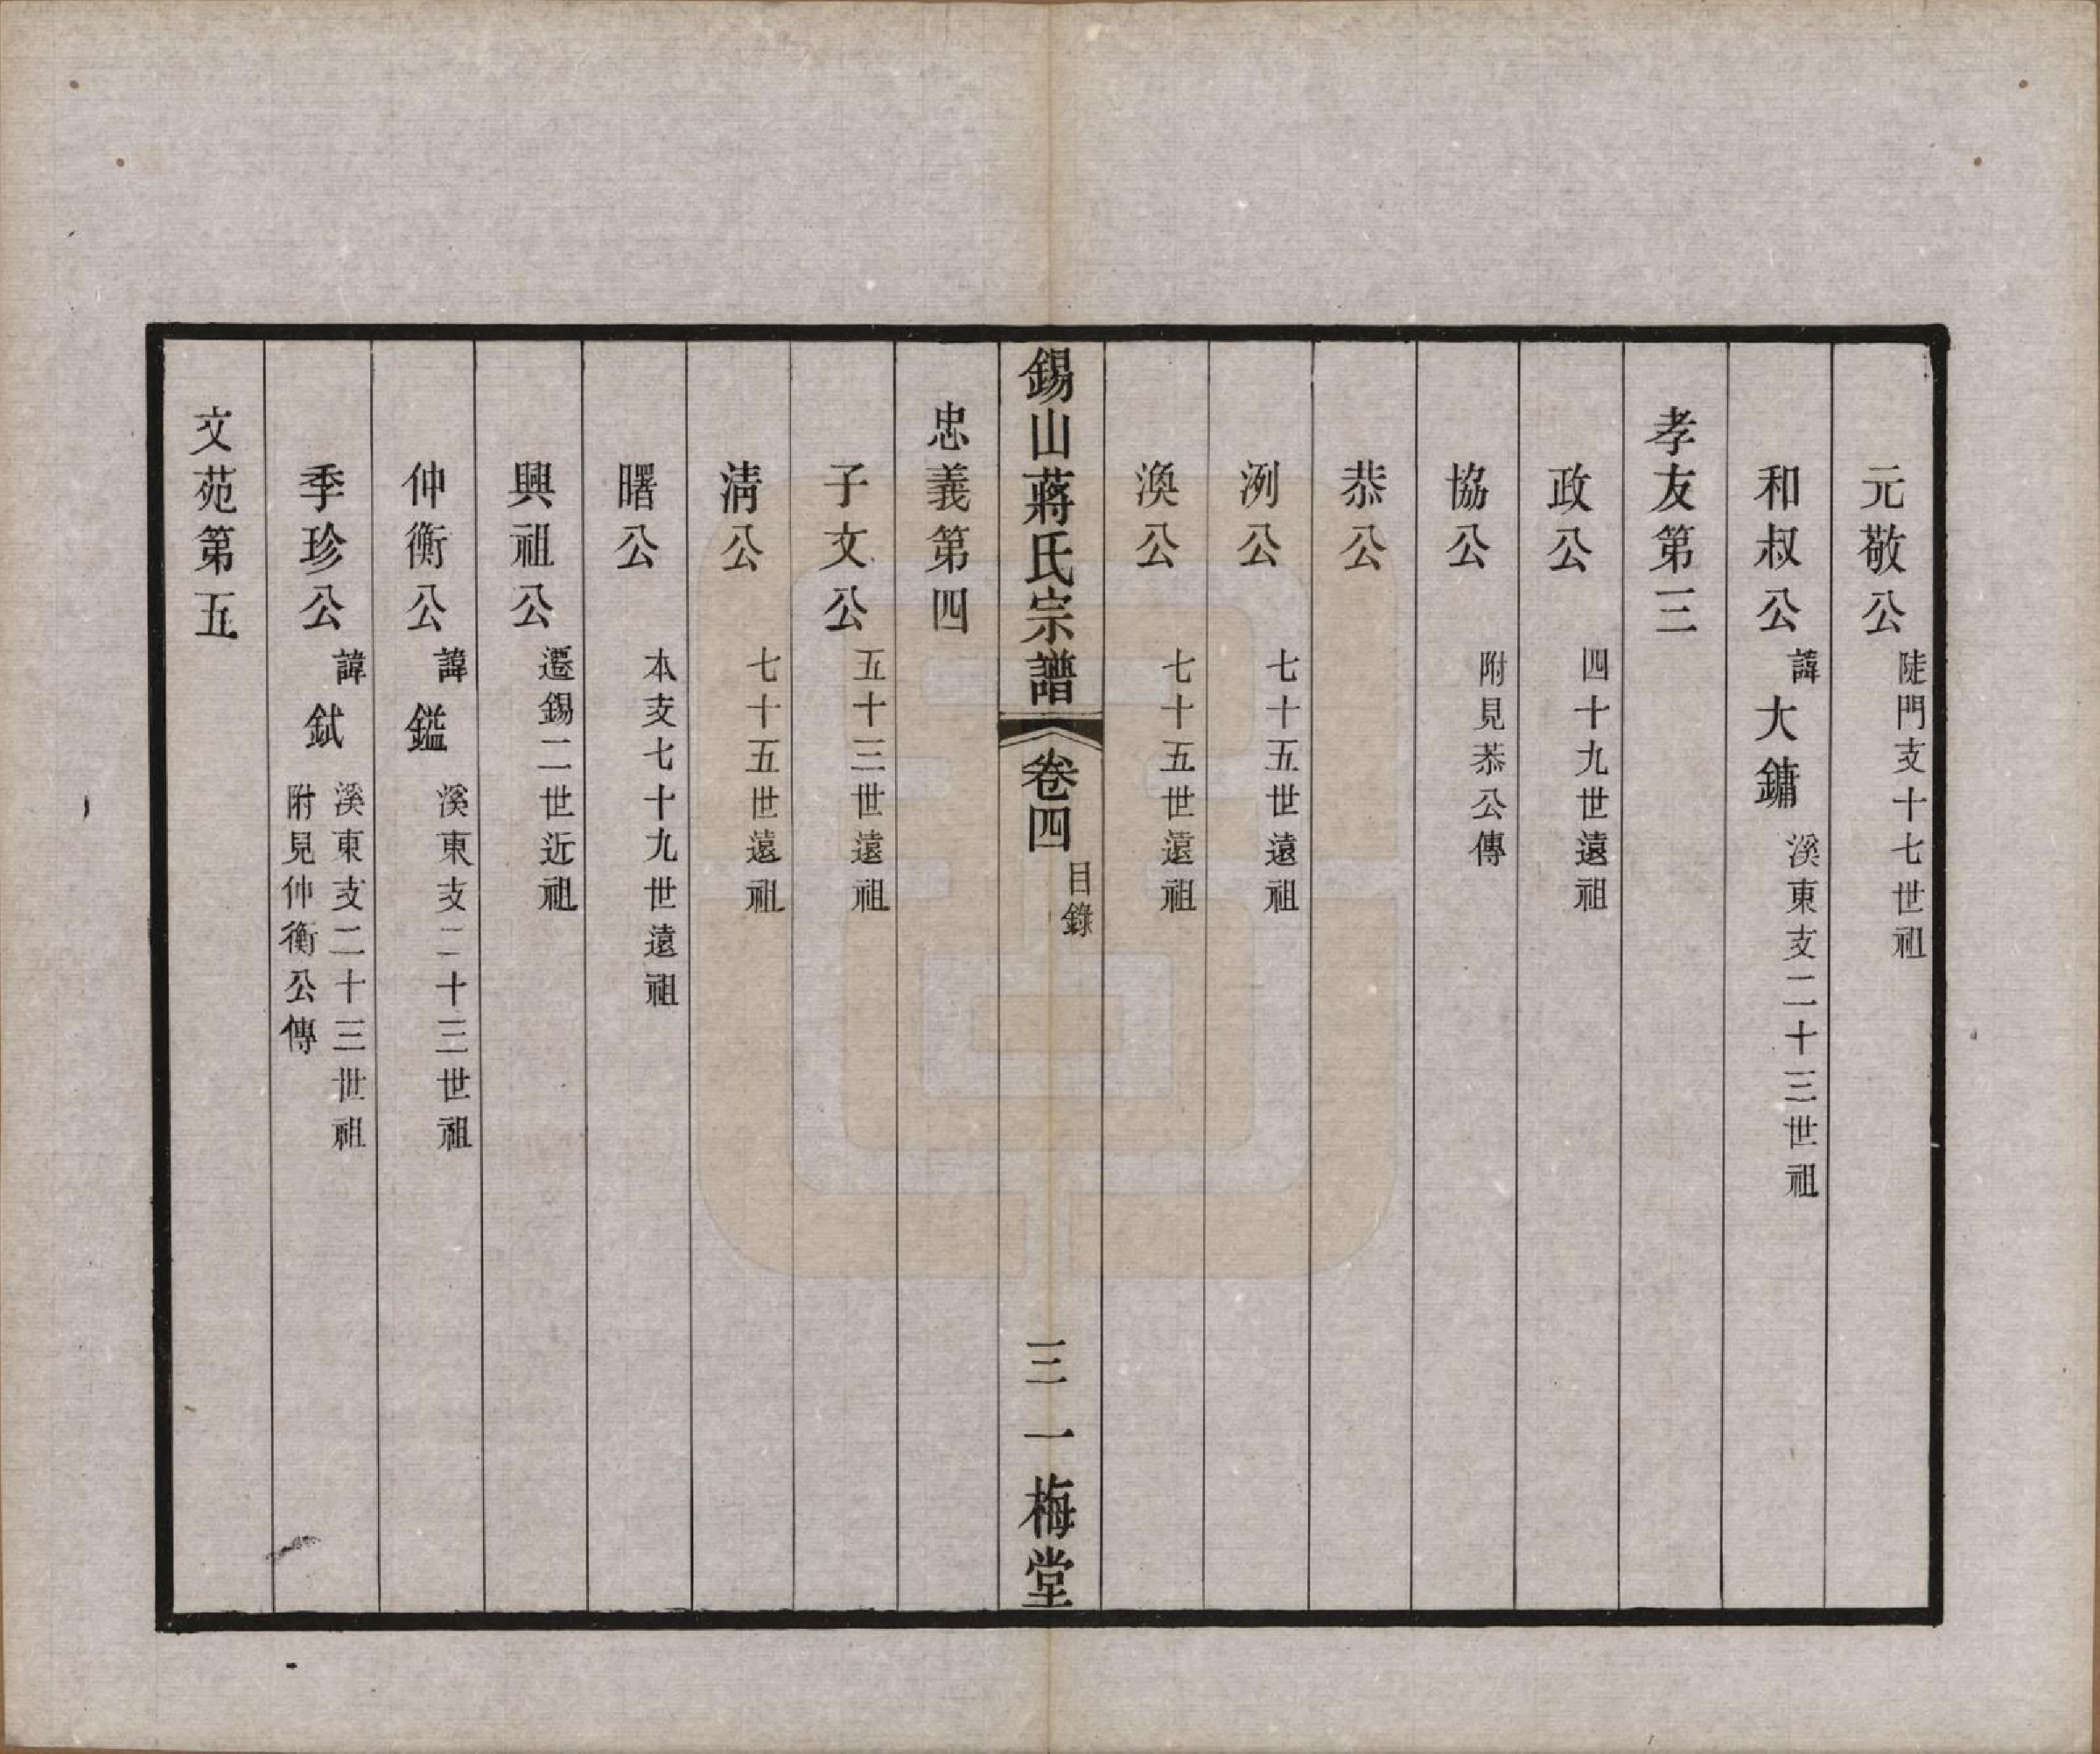 元敬公 陡門支十七世祖
和叔公 諱大鏞 溪東支二十三世祖
孝友第三
政公 四十九世遠祖
協公 附見恭公傳
恭公
洌公 七十五世遠祖
渙公 七十五世遠祖
錫山蔣氏宗譜 卷四 目錄 三 一梅堂
忠義第四
子文公 五十三世遠祖
清公 七十五世遠祖
曙公 本支七十九世遠祖
興祖公 遷錫二世近祖
仲衡公 諱鎰 溪東支二十三世祖
季珍公 諱鉽 溪東支二十三世祖
附見仲衡公傳
文苑第五